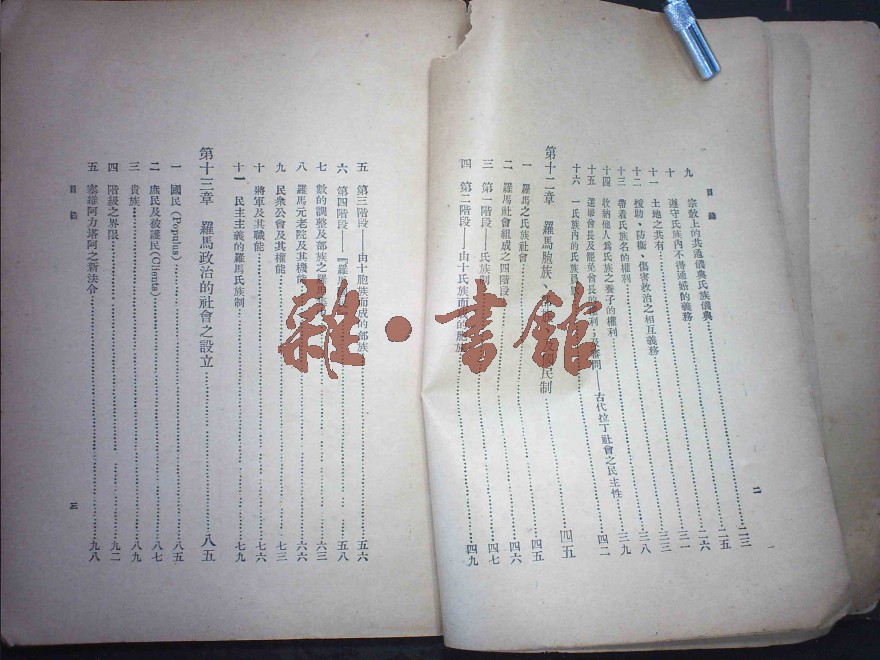 目錄
九 宗敎上的共通儀典與氏族儀典 二三
十 遵守氏族內不得通婚的義務 二五
十一 土地之共有 三一
十二 援助、防衛、傷害救治之相互義務 三三
十三 帶着氏族名的權利 三八
十四 收納他人爲氏族之養子的權利 三九
十五 選舉會長及罷免會長的 利 審問——古代拉丁社會之民主性
十六 一氏族內的氏族員 四二
第十二章 羅馬胞族、 制 四五
一 羅馬之氏族社會 四五
二 羅馬社會組成之四階段 四六
三 第一階段——氏族制 四七
四 第二階段——由十氏族而 的胞族 四九
二
五 第三階段——由十胞族而成的部族 五六
六 第四階段——『羅馬 五八
七 數的調整及部族之羅馬 六三
八 羅馬元老院及其機能 六六
九 民衆公會及其權能 七三
十 將軍及其職能 七六
十一 民主主義的羅馬氏族制 七九
第十三章 羅馬政治的社會之設立 八五
一 國民(Populus) 八五
二 庶民及被護民(Clients) 八七
三 貴族 八九
四 階級之界限 九二
五 塞維阿力塔阿之新法令 九八
目錄
三
雜·書館